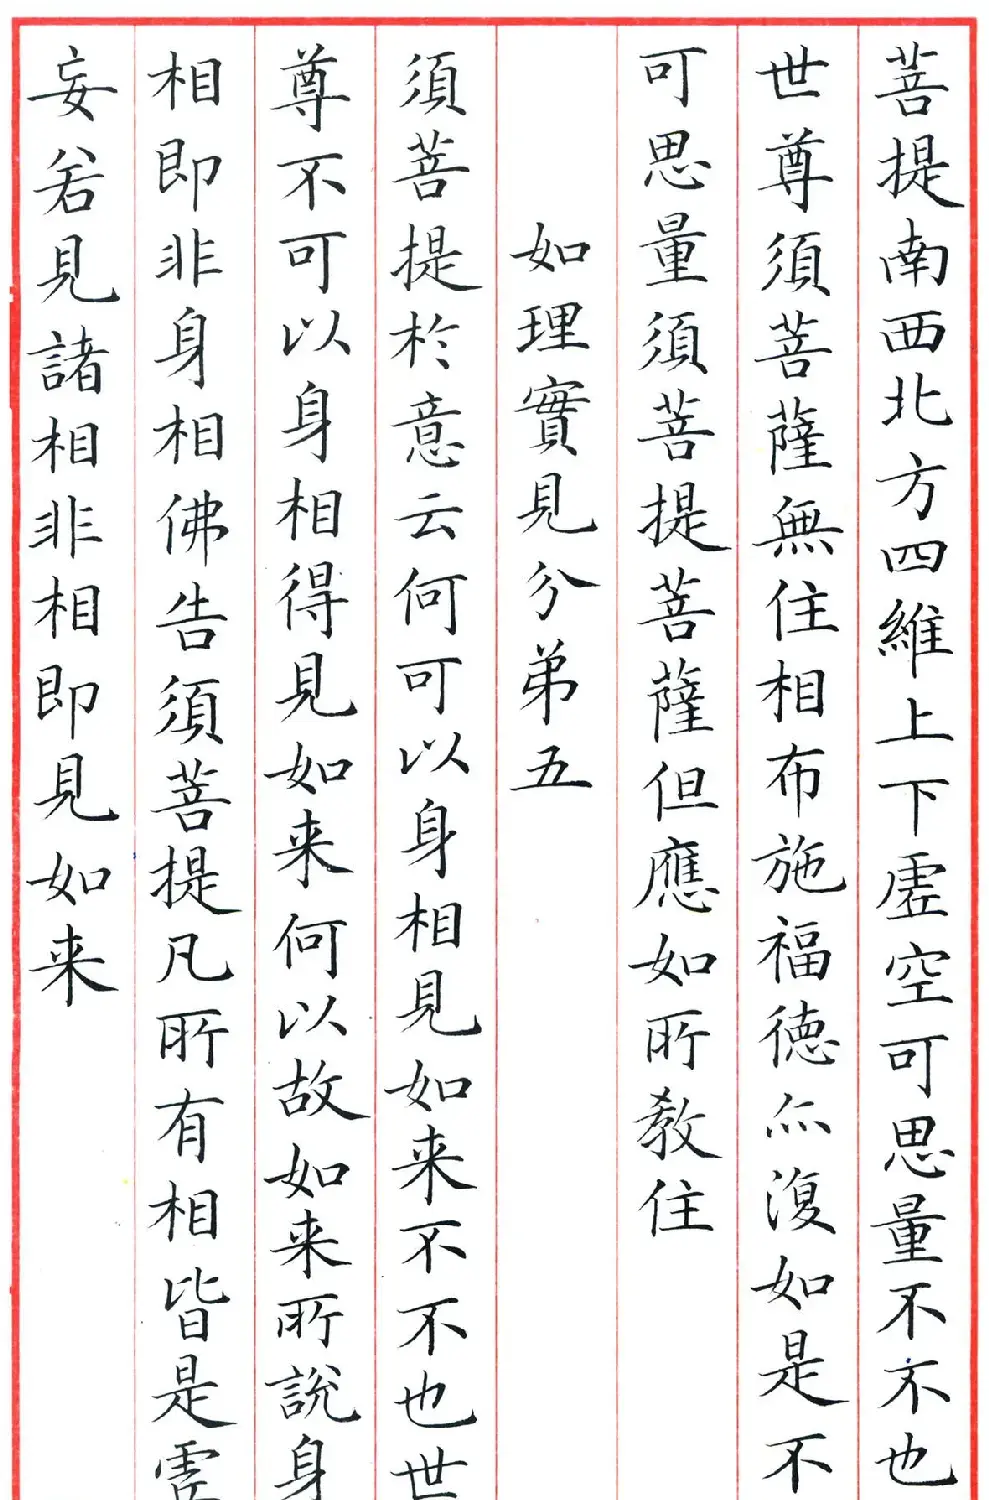 菩提南西北方四維上下虛空可思量不不也
世尊須菩薩無住相布施福德亦復如是不
可思量須菩提菩薩但應如所教住
如理實見分弟五
須菩提於意云何可以身相見如来不不也世
尊不可以身相得見如来何以故如来所說身
相即非身相佛告須菩提凡所有相皆是虛
妄若見諸相非相即見如来